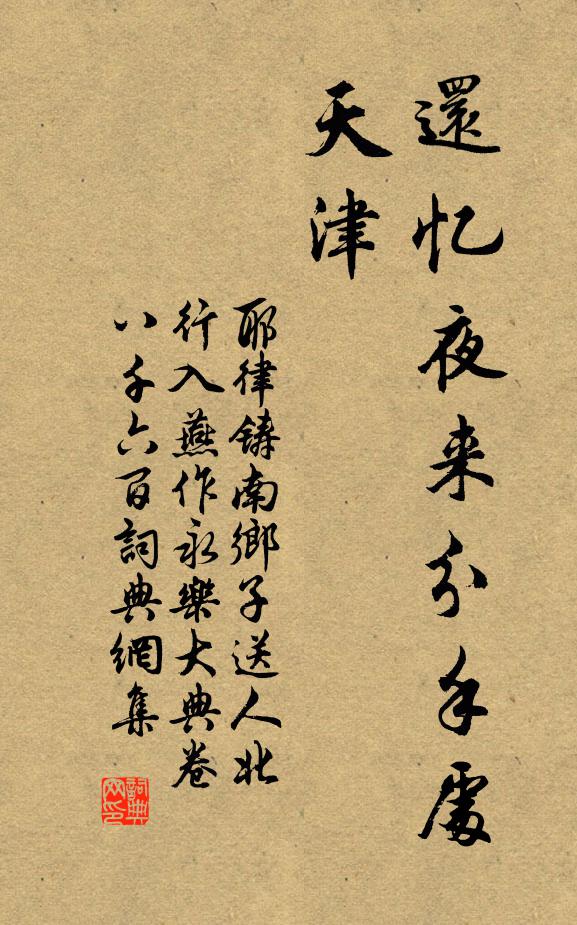 還忆夜来分手處
天津
耶律鑄南鄉子送人北
行入燕作永樂大典卷
八千六百詞典網集
詞典网印